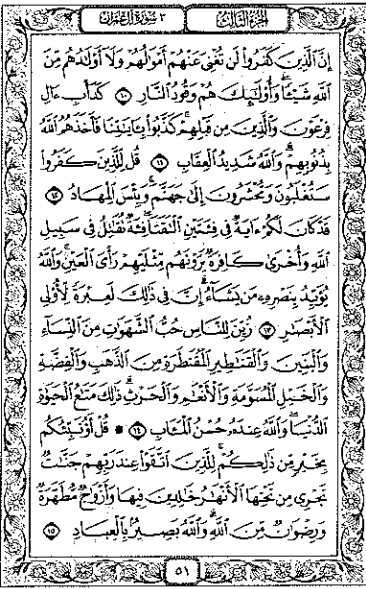 الجزء الثالث ٣ سورة آل عمران
إِنَّ الَّذِينَ كَفَرُوا لَن تُغْنِيَ عَنْهُمْ أَمْوَالُهُمْ وَلَا أَوْلَادُهُم مِّنَ
اللَّهِ شَيْئًا وَأُولَٰئِكَ هُمْ وَقُودُ النَّارِ ١٠ كَدَأْبِ ءَالِ
فِرْعَوْنَ وَالَّذِينَ مِن قَبْلِهِمْ كَذَّبُوا بِـَٔايَاتِنَا فَأَخَذَهُمُ اللَّهُ
بِذُنُوبِهِمْ وَاللَّهُ شَدِيدُ الْعِقَابِ ١١ قُل لِّلَّذِينَ كَفَرُوا
سَتُغْلَبُونَ وَتُحْشَرُونَ إِلَىٰ جَهَنَّمَ وَبِئْسَ الْمِهَادُ ١٢
قَدْ كَانَ لَكُمْ ءَايَةٌ فِي فِئَتَيْنِ الْتَقَتَا فِئَةٌ تُقَاتِلُ فِي سَبِيلِ
اللَّهِ وَأُخْرَىٰ كَافِرَةٌ يَرَوْنَهُم مِّثْلَيْهِمْ رَأْيَ الْعَيْنِ وَاللَّهُ
يُؤَيِّدُ بِنَصْرِهِ مَن يَشَاءُ إِنَّ فِي ذَٰلِكَ لَعِبْرَةً لِّأُولِي
الْأَبْصَارِ ١٣ زُيِّنَ لِلنَّاسِ حُبُّ الشَّهَوَاتِ مِنَ النِّسَاءِ
وَالْبَنِينَ وَالْقَنَاطِيرِ الْمُقَنطَرَةِ مِنَ الذَّهَبِ وَالْفِضَّةِ
وَالْخَيْلِ الْمُسَوَّمَةِ وَالْأَنْعَامِ وَالْحَرْثِ ذَٰلِكَ مَتَاعُ الْحَيَوٰةِ
الدُّنْيَا وَاللَّهُ عِندَهُ حُسْنُ الْمَـَٔابِ ١٤ ۞ قُلْ أَؤُنَبِّئُكُم
بِخَيْرٍ مِّن ذَٰلِكُمْ لِلَّذِينَ اتَّقَوْا عِندَ رَبِّهِمْ جَنَّاتٌ
تَجْرِي مِن تَحْتِهَا الْأَنْهَارُ خَالِدِينَ فِيهَا وَأَزْوَاجٌ مُّطَهَّرَةٌ
وَرِضْوَانٌ مِّنَ اللَّهِ وَاللَّهُ بَصِيرٌ بِالْعِبَادِ ١٥
٥١